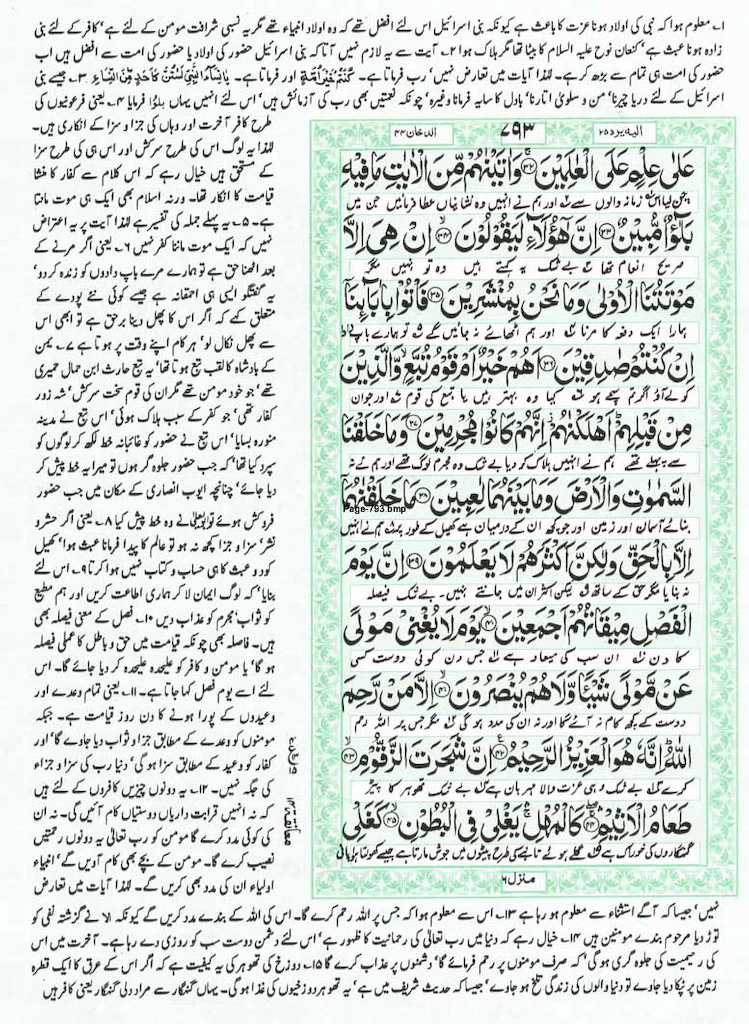 ۱۔ معلوم ہوا کہ نبی کی اولاد ہونا عزت کا باعث ہے کیونکہ بنی اسرائیل اس لئے افضل تھے کہ وہ اولاد انبیاء تھے مگر یہ نسبی شرافت مومن کے لئے ہے، کافر کے لئے نبی
زادہ ہونا عبث ہے، کنعان نوح علیہ السلام کا بیٹا تھا مگر ہلاک ہوا ۲۔ آیت سے یہ لازم نہیں آتا کہ بنی اسرائیل حضور کی اولاد یا حضور کی امت سے افضل ہیں اب
حضور کی امت ہی تمام سے بڑھ کر ہے۔ لہٰذا آیات میں تعارض نہیں، رب فرماتا ہے۔ كُنْتُمْ خَيْرَ أُمَّةٍ اور فرماتا ہے۔ يٰنِسَآءَ النَّبِيِّ لَسْتُنَّ كَاَحَدٍ مِّنَ النِّسَآءِ ۳۔ جیسے بنی
اسرائیل کے لئے دریا چیرنا، من و سلویٰ اتارنا، بادل کا سایہ فرمانا وغیرہ، چونکہ نعمتیں بھی رب کی آزمائش ہیں، اس لئے انہیں یہاں بلٰؤا فرمایا ۴۔ یعنی فرعونیوں کی
طرح کافر آخرت اور وہاں کی جزا و سزا کے انکاری ہیں۔
لہٰذا یہ لوگ اس کی طرح سرکش اور اس ہی کی طرح سزا
کے مستحق ہیں خیال رہے کہ اس کلام سے کفار کا منشا
قیامت کا انکار تھا۔ ورنہ اسلام بھی ایک ہی موت مانتا
ہے۔ ۵۔ یہ پہلے جملہ کی تفسیر ہے لہٰذا آیت پر یہ اعتراض
نہیں کہ ایک موت ماننا کفر نہیں ۶۔ یعنی اگر مرنے کے
بعد اٹھنا حق ہے تو ہمارے مرے باپ دادوں کو زندہ کر دو،
یہ گفتگو ایسی ہی احمقانہ ہے جیسے کوئی نئے پودے کے
متعلق کہے کہ اگر اس کا پھل دینا برحق ہے تو ابھی اس
سے پھل نکال لو، ہر کام اپنے وقت پر ہوتا ہے ۷۔ یمن
کے بادشاہ کا لقب تبع ہوتا تھا، یہ تبع حارث ابن حمال حمیری
تھے، جو خود مومن تھے مگر ان کی قوم سخت سرکش، شہ زور
کفار تھی، جو کفر کے سبب ہلاک ہوئی، اس تبع نے مدینہ
منورہ بسایا، اس تبع نے حضور کو غائبانہ خط لکھ کر لوگوں کو
سپرد کیا تھا، کہ جب حضور جلوہ گر ہوں تو میرا یہ خط پیش کر
دیا جائے، چنانچہ ایوب انصاری کے مکان میں جب حضور
فروکش ہوئے تو نے وہ خط پیش کیا ۸۔ یعنی اگر حشر و
نشر، سزا و جزا کچھ نہ ہو تو عالم کا پیدا فرمانا عبث ہوا، کھیل
کود و عبث کا ہی حساب و کتاب نہیں ہوا کرتا ۹۔ اس لئے
بنایا، کہ لوگ ایمان لا کر ہماری اطاعت کریں اور ہم مطیع
کو ثواب، مجرم کو عذاب دیں ۱۰۔ فصل کے معنی فیصلہ بھی
ہیں۔ فاصلہ بھی چونکہ قیامت میں حق و باطل کا عملی فیصلہ
ہو گا، یا مومن و کافر کو علیحدہ علیحدہ کر دیا جائے گا۔ اس
لئے اسے یوم فصل کہا جاتا ہے۔ ۱۱۔ یعنی تمام وعدے اور
وعیدوں کے پورا ہونے کا دن روز قیامت ہے۔ جبکہ
مومنوں کو وعدے کے مطابق جزا و ثواب دیا جاوے گا، اور
کفار کو وعید کے مطابق سزا ہو گی، دنیا رب کی سزا و جزا
کی جگہ نہیں۔ ۱۲۔ یہ دونوں چیزیں کافروں کے لئے ہیں
کہ نہ انہیں قرابت داریاں دوستیاں کام آئیں گی۔ نہ ان
کی کوئی مدد کرے گا مومن کو رب تعالیٰ یہ دونوں رحمتیں
نصیب کرے گا۔ مومن کے بچے بھی کام آویں گے، انبیاء
اولیاء ان کی مدد بھی کریں گے۔ لہٰذا آیات میں تعارض
الیہ یرد ۲۵
۷۹۳
الدخان ۴۴
عَلٰى عِلْمٍ عَلَى الْعٰلَمِيْنَ ﴿۳۲﴾ وَاٰتَيْنٰهُمْ مِّنَ الْاٰيٰتِ مَا فِيْهِ
چن لیا اس زمانہ والوں سے اور ہم نے انہیں وہ نشانیاں عطا فرمائیں جن میں
بَلٰٓؤٌا مُّبِيْنٌ ﴿۳۳﴾ اِنَّ هٰٓؤُلَآءِ لَيَقُوْلُوْنَ ﴿۳۴﴾ اِنْ هِيَ اِلَّا
صریح انعام تھا بے شک یہ کہتے ہیں وہ تو نہیں مگر
مَوْتَتُنَا الْاُوْلٰى وَمَا نَحْنُ بِمُنْشَرِيْنَ ﴿۳۵﴾ فَاْتُوْا بِاٰبَآئِنَآ
ہمارا ایک دفعہ کا مرنا اور ہم اٹھائے نہ جائیں گے تو ہمارے باپ دادا
اِنْ كُنْتُمْ صٰدِقِيْنَ ﴿۳۶﴾ اَهُمْ خَيْرٌ اَمْ قَوْمُ تُبَّعٍ وَّالَّذِيْنَ
کو لے آؤ اگر تم سچے ہو کیا وہ بہتر ہیں یا تبع کی قوم اور جو ان
مِنْ قَبْلِهِمْ اَهْلَكْنٰهُمْ اِنَّهُمْ كَانُوْا مُجْرِمِيْنَ ﴿۳۷﴾ وَمَا خَلَقْنَا
سے پہلے تھے ہم نے انہیں ہلاک کر دیا بے شک وہ مجرم لوگ تھے اور ہم نے نہ
السَّمٰوٰتِ وَالْاَرْضَ وَمَا بَيْنَهُمَا لٰعِبِيْنَ ﴿۳۸﴾ مَا خَلَقْنٰهُمَآ
Page-793.bmp
بنائے آسمان اور زمین اور جو کچھ ان کے درمیان ہے کھیل کے طور پر ہم نے انہیں
اِلَّا بِالْحَقِّ وَلٰكِنَّ اَكْثَرَهُمْ لَا يَعْلَمُوْنَ ﴿۳۹﴾ اِنَّ يَوْمَ
نہ بنایا مگر حق کے ساتھ لیکن ان میں اکثر جانتے نہیں۔ بے شک فیصلہ
الْفَصْلِ مِيْقَاتُهُمْ اَجْمَعِيْنَ ﴿۴۰﴾ يَوْمَ لَا يُغْنِيْ مَوْلًى
کا دن ان سب کی میعاد ہے جس دن کوئی دوست کسی
عَنْ مَّوْلًى شَيْـًٔا وَّلَا هُمْ يُنْصَرُوْنَ ﴿۴۱﴾ اِلَّا مَنْ رَّحِمَ
دوست کے کچھ کام نہ آئے گا اور نہ ان کی مدد ہو گی مگر جس پر اللہ رحم
اللّٰهُ اِنَّهٗ هُوَ الْعَزِيْزُ الرَّحِيْمُ ﴿۴۲﴾ اِنَّ شَجَرَتَ الزَّقُّوْمِ ﴿۴۳﴾
کرے بے شک وہی عزت والا مہربان ہے بے شک تھوہر کا پیڑ
طَعَامُ الْاَثِيْمِ ﴿۴۴﴾ كَالْمُهْلِ يَغْلِيْ فِي الْبُطُوْنِ ﴿۴۵﴾ كَغَلْيِ
گنہگاروں کی خوراک ہے گلے ہوئے تانبے کی طرح پیٹوں میں جوش مارتا ہے جیسے کھولتا پانی
منزل ۶
معانقة ۱۳
نہیں، جیسا کہ آگے استثناء سے معلوم ہو رہا ہے ۱۳۔ اس سے معلوم ہوا کہ جس پر اللہ رحم کرے گا۔ اس کی اللہ کے بندے مدد کریں گے کیونکہ الا نے گزشتہ نفی کو
توڑ دیا مرحوم بندے مومنین ہیں ۱۴۔ خیال رہے کہ دنیا میں رب تعالیٰ کی رحمانیت کا ظہور ہے، اس لئے دشمن دوست سب کو روزی دے رہا ہے۔ آخرت میں اس
کی رحیمیت کی جلوہ گری ہو گی، کہ صرف مومنوں پر رحم فرمائے گا، دشمنوں پر عذاب کرے گا ۱۵۔ دوزخ کی تھوہر کی یہ کیفیت ہے کہ اگر اس کے عرق کا ایک قطرہ
زمین پر ٹپکا دیا جاوے تو دنیا والوں کی زندگی تلخ ہو جاوے، جیسا کہ حدیث شریف میں ہے، یہ تھوہر دوزخیوں کی غذا ہو گی۔ یہاں گنہگار سے مراد دلی گنہگار یعنی کافر ہیں